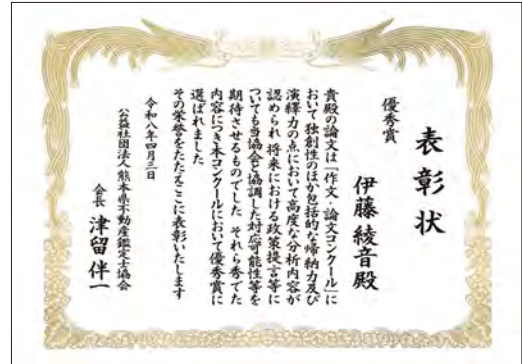 表彰状
優秀賞
伊藤綾音殿
貴殿の論文は「作文・論文コンクール」に
おいて 独創性のほか包括的な帰納力及び
演繹力の点において高度な分析内容が
認められ 将来における政策提言等に
ついても当協会と協調した対応可能性等を
期待させるものでした それら秀でた
内容につき本コンクールにおいて優秀賞に
選ばれました
その栄誉をたたえここに表彰いたします
令和八年四月三日
公益社団法人 熊本県不動産鑑定士協会
会長 津留伴一